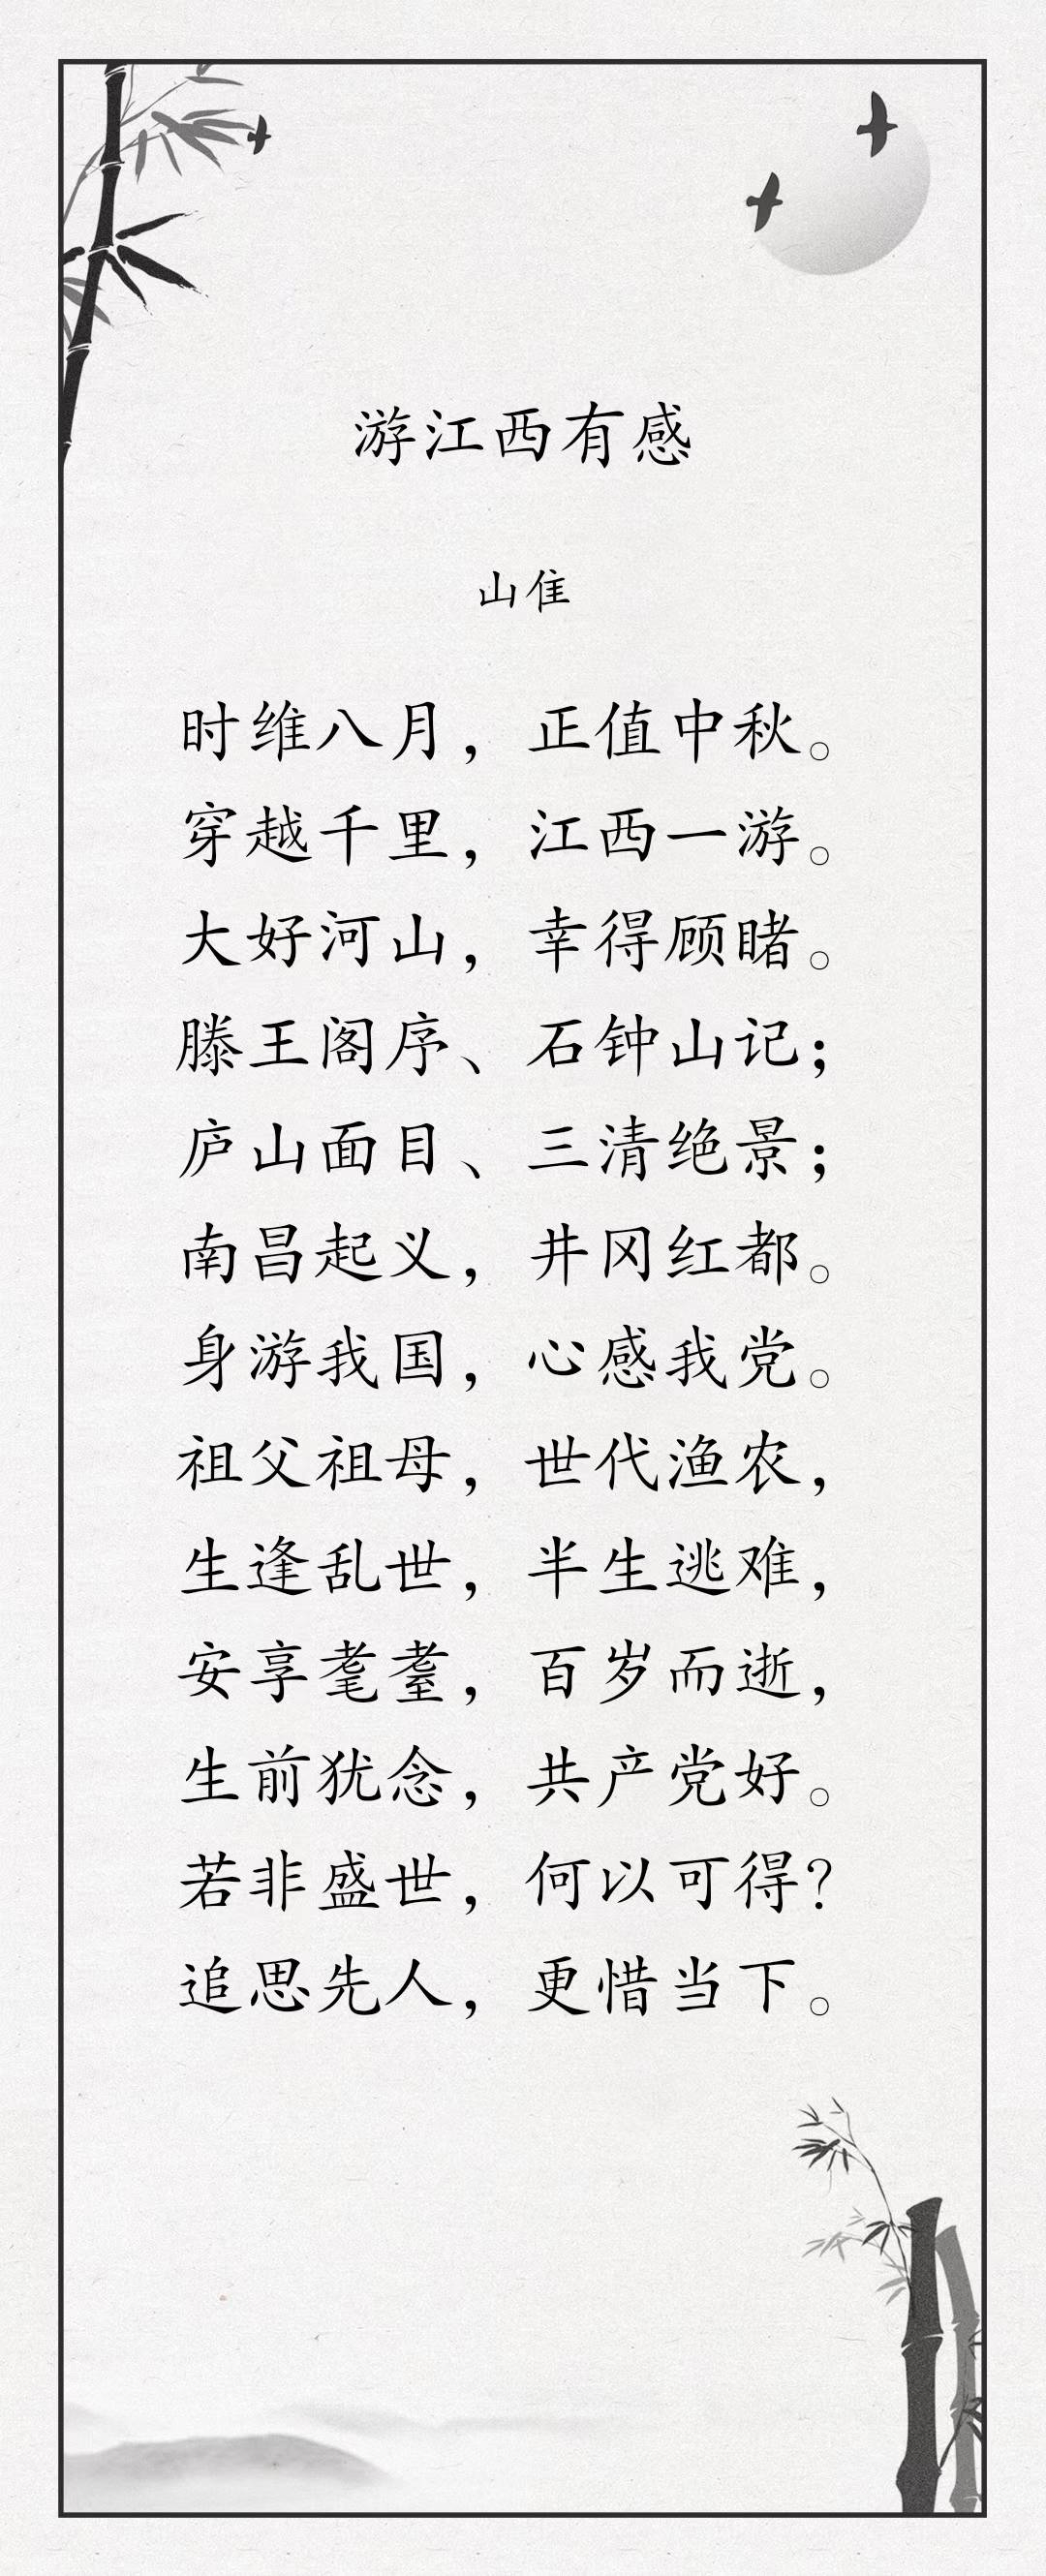 游江西有感
山隹
时维八月，正值中秋。
穿越千里，江西一游。
大好河山，幸得顾睹。
滕王阁序、石钟山记；
庐山面目、三清绝景；
南昌起义，井冈红都。
身游我国，心感我党。
祖父祖母，世代渔农，
生逢乱世，半生逃难，
安享耄耋，百岁而逝，
生前犹念，共产党好。
若非盛世，何以可得？
追思先人，更惜当下。